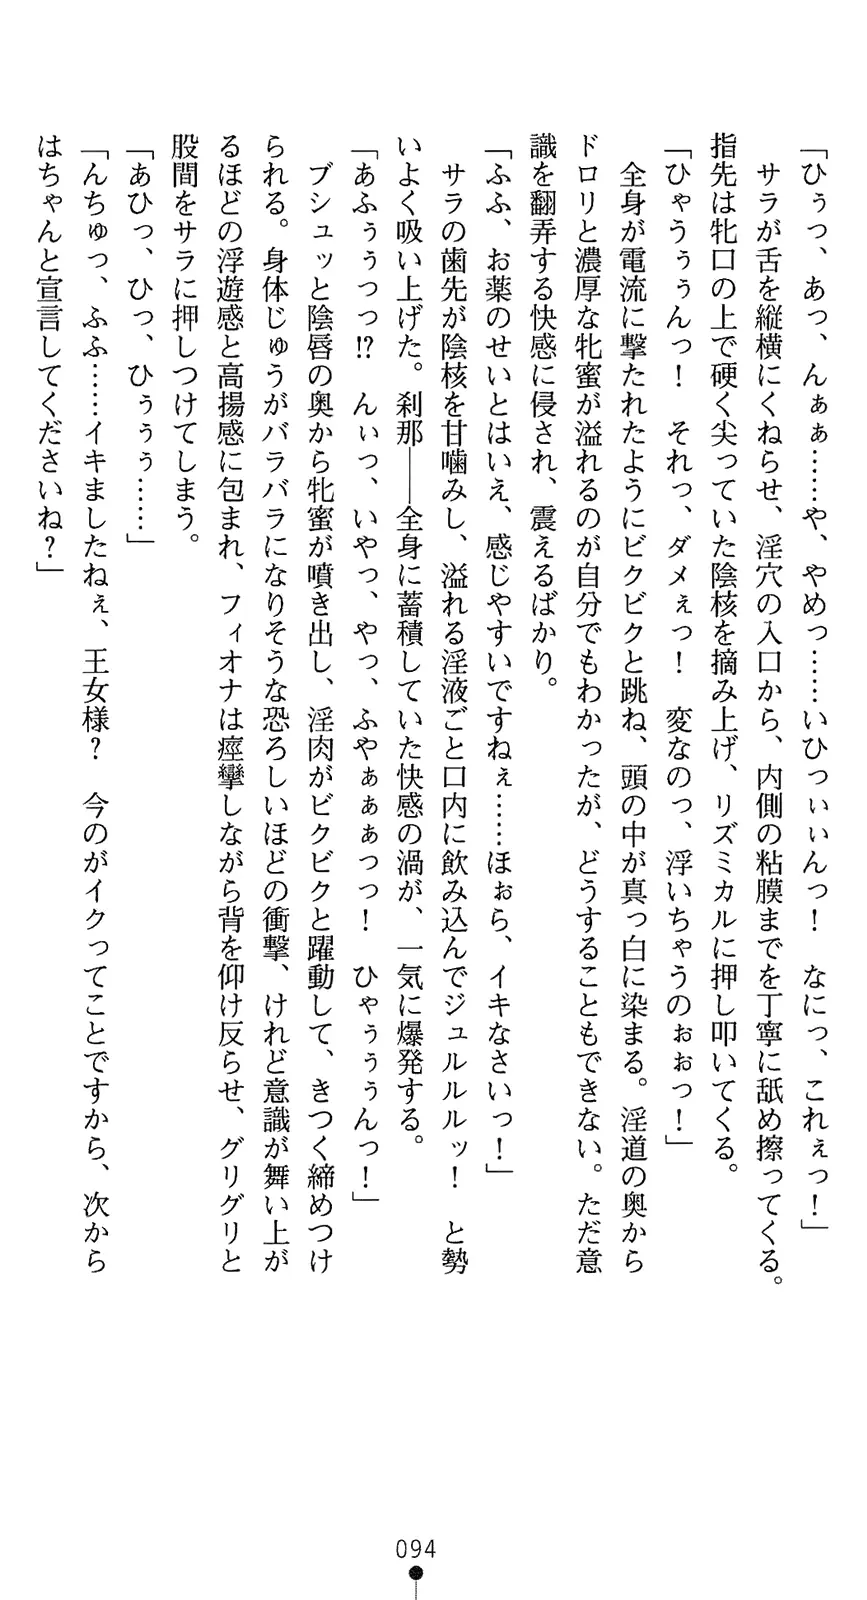 「ひぅっ、あっ、んぁぁ……や、やめっ……いひっぃぃんっ！　なにっ、これぇっ！」
　サラが舌を縦横にくねらせ、淫穴の入口から、内側の粘膜までを丁寧に舐め擦ってくる。
指先は牝口の上で硬く尖っていた陰核を摘み上げ、リズミカルに押し叩いてくる。
「ひゃうぅぅんっ！　それっ、ダメぇっ！　変なのっ、浮いちゃうのぉぉっ！」
　全身が電流に撃たれたようにビクビクと跳ね、頭の中が真っ白に染まる。淫道の奥から
ドロリと濃厚な牝蜜が溢れるのが自分でもわかったが、どうすることもできない。ただ意
識を翻弄する快感に侵され、震えるばかり。
「ふふ、お薬のせいとはいえ、感じやすいですねぇ……ほぉら、イキなさいっ！」
　サラの歯先が陰核を甘噛みし、溢れる淫液ごと口内に飲み込んでジュルルルッ！　と勢
いよく吸い上げた。刹那――全身に蓄積していた快感の渦が、一気に爆発する。
「あふぅぅっっ!?　んぃっ、いやっ、やっ、ふやぁぁぁっっ！　ひゃぅぅぅんっ！」
　ブシュッと陰唇の奥から牝蜜が噴き出し、淫肉がビクビクと躍動して、きつく締めつけ
られる。身体じゅうがバラバラになりそうな恐ろしいほどの衝撃、けれど意識が舞い上が
るほどの浮遊感と高揚感に包まれ、フィオナは痙攣しながら背を仰け反らせ、グリグリと
股間をサラに押しつけてしまう。
「あひっ、ひっ、ひぅぅぅ……」
「んちゅっ、ふふ……イキましたねぇ、王女様？　今のがイクってことですから、次から
はちゃんと宣言してくださいね？」
094